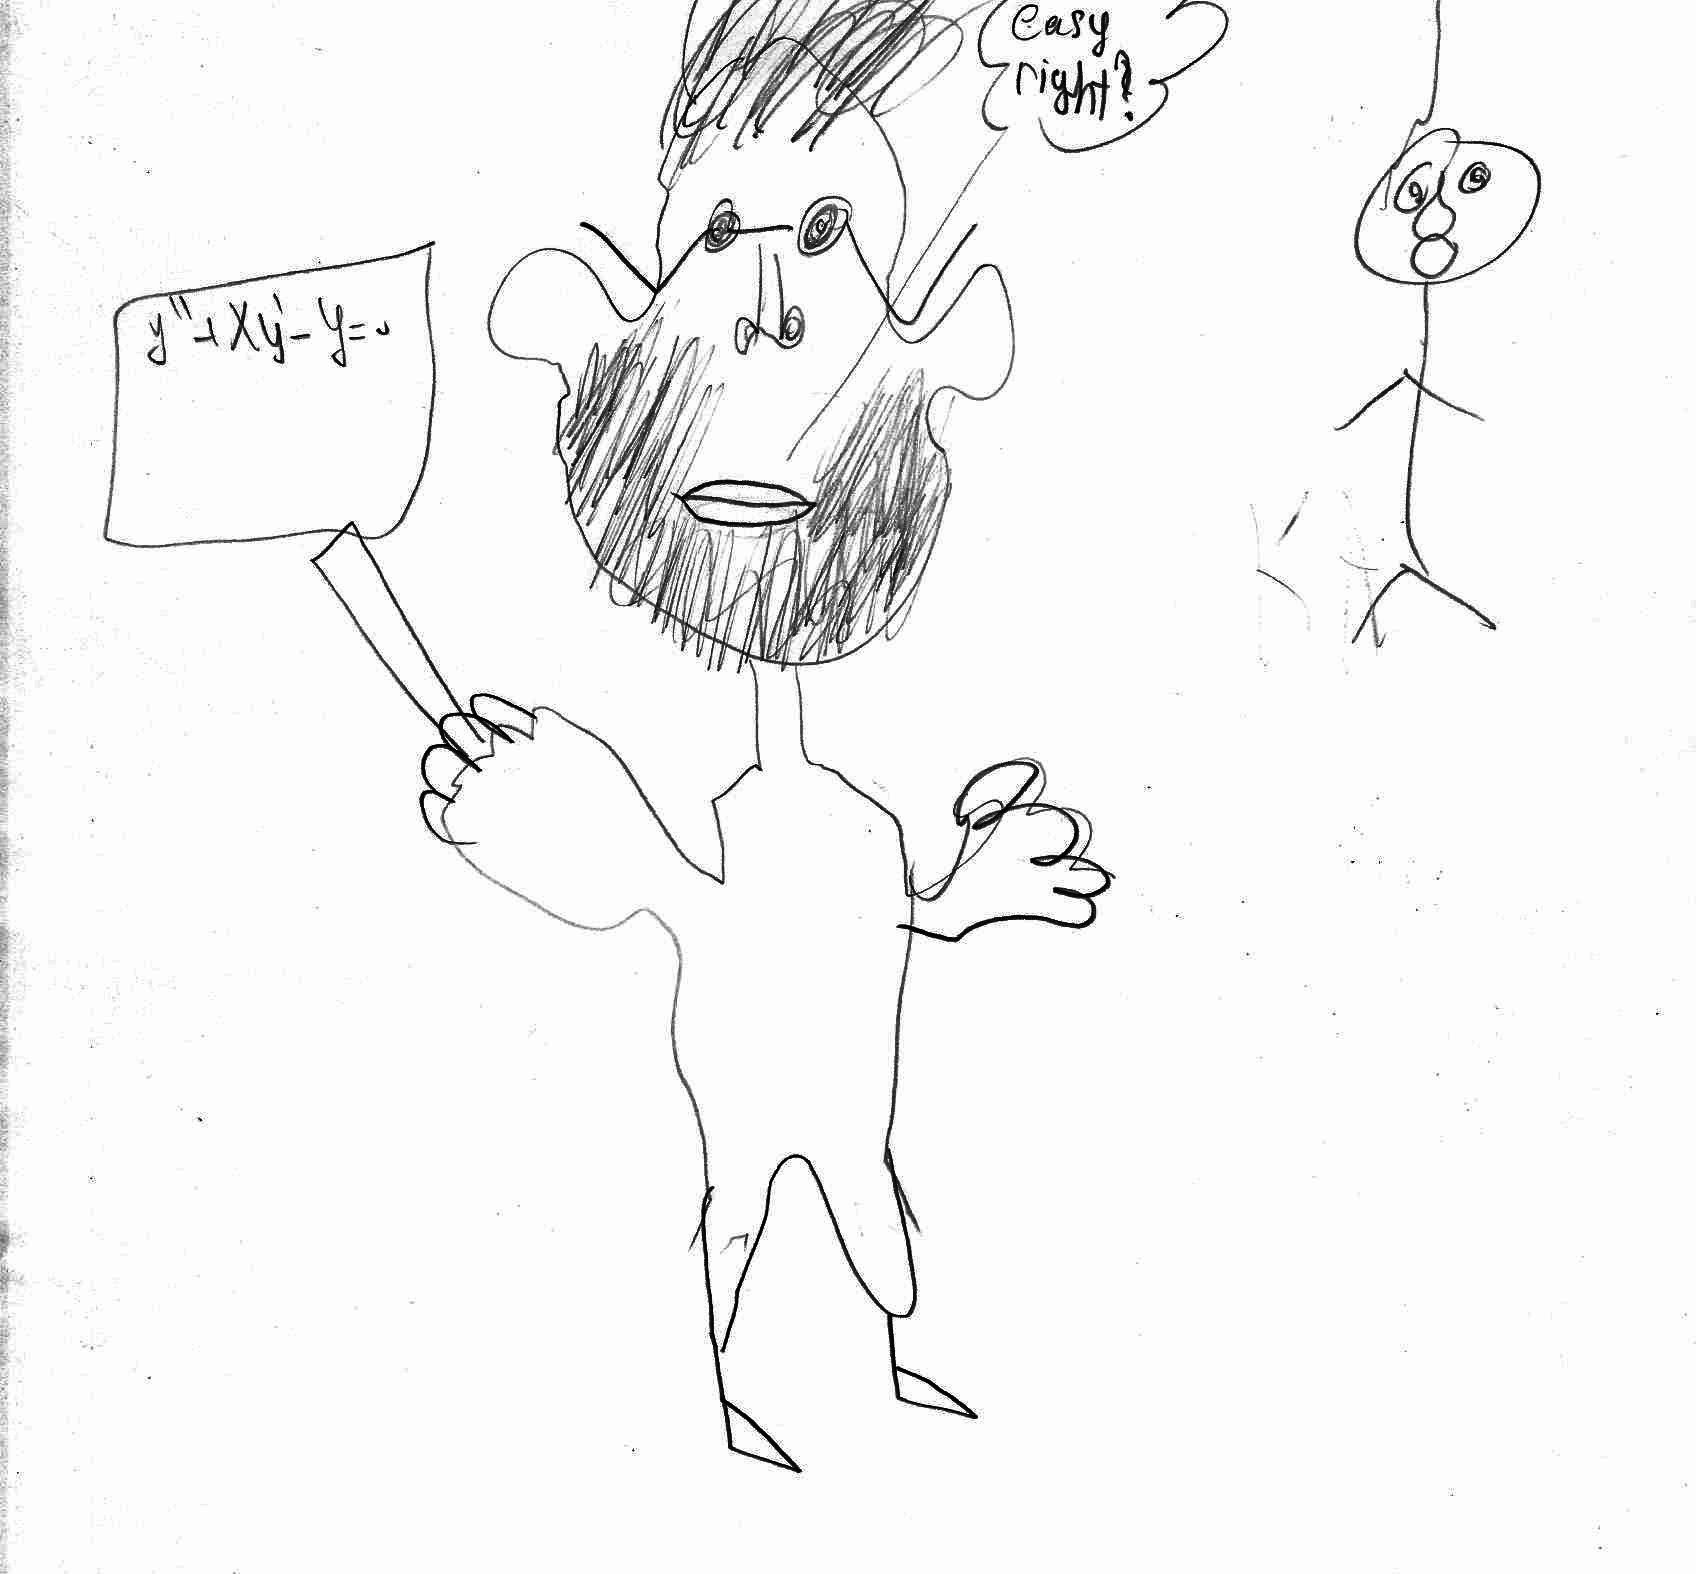 easy
right?
y"+xy'-y=0